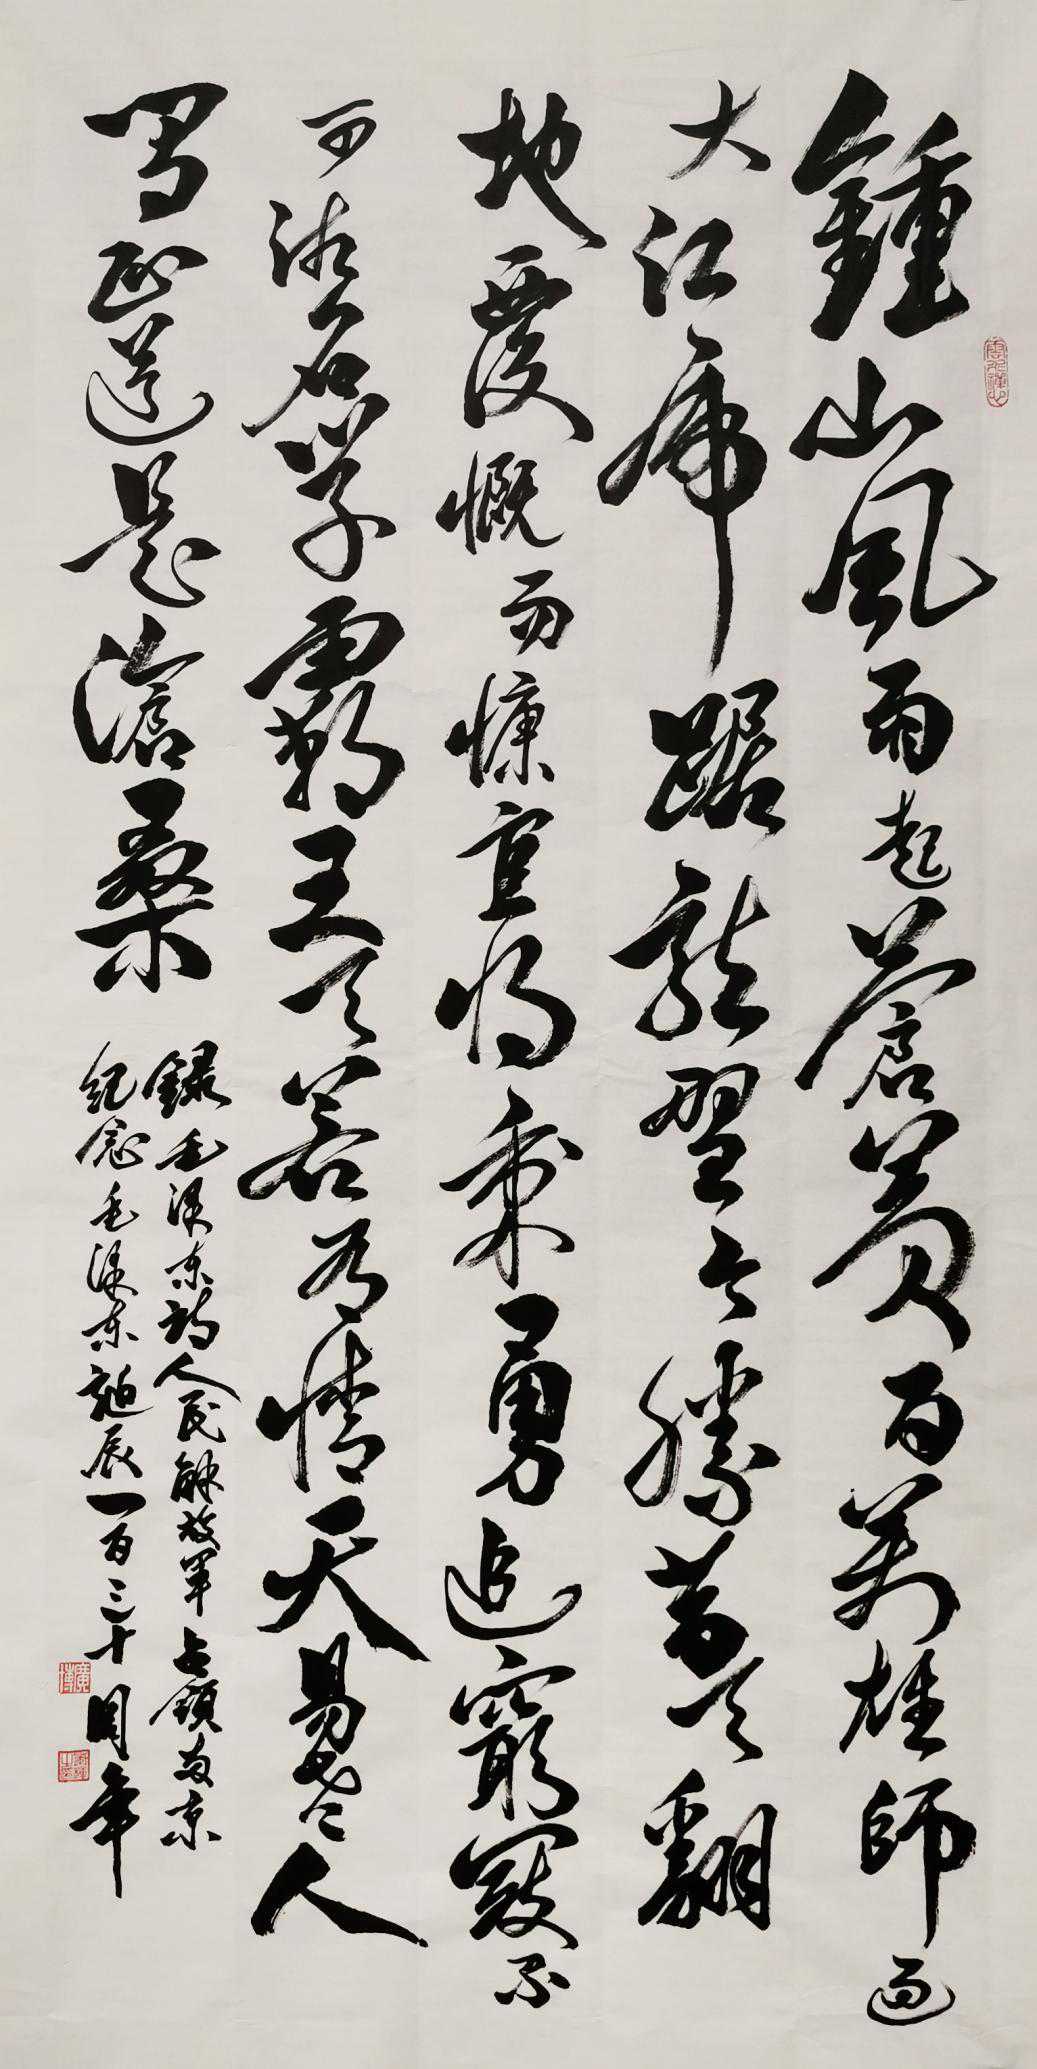 鍾山風雨起蒼黃百萬雄師過
大江虎踞龍盤今勝昔天翻
地覆慨而慷宜將剩勇追窮寇不
可沽名學霸王天若有情天易老人
間正道是滄桑
錄毛澤東詩人民解放軍占領南京
紀念毛澤東誕辰一百三十周年